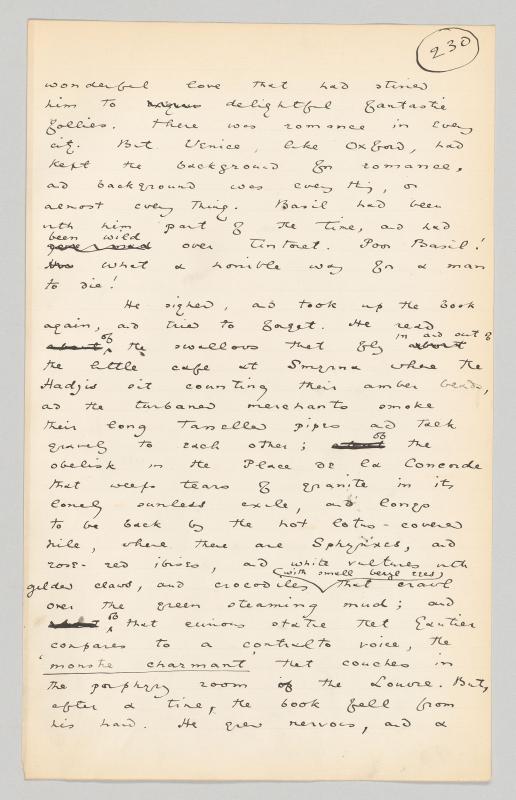 230
wonderful love that had stirred
him to delightful fantastic
follies. There was romance in every
city. But Venice, like Oxford, had
kept the background for romance,
and background was everything, or
almost everything. Basil had been
with him part of the time, and had
been wild
gone mad over Tintoret. Poor Basil!
what a horrible way for a man
to die!
He sighed, and took up the book
again, and tried to forget. He read
of in and out of
about the swallows that fly about
the little café at Smyrna where the
Hadjis sit counting their amber beads,
and the turbaned merchants smoke
their long tasselled pipes and talk
of
gravely to each other; about the
obelisk in the Place de la Concorde
that weeps tears of granite in its
lonely sunless exile, and longs
to be back by the hot lotus-covered
Nile, where there are Sphynxes, and
rose-red ibises, and white vultures with
(with small beryl eyes)
gilded claws, and crocodiles that crawl
over the green steaming mud; and
of
about that curious statue that Gautier
compares to a contralto voice, the
'monstre charmant' that couches in
the porphyry room of the Louvre. But,
after a time, the book fell from
his hand. He grew nervous, and a